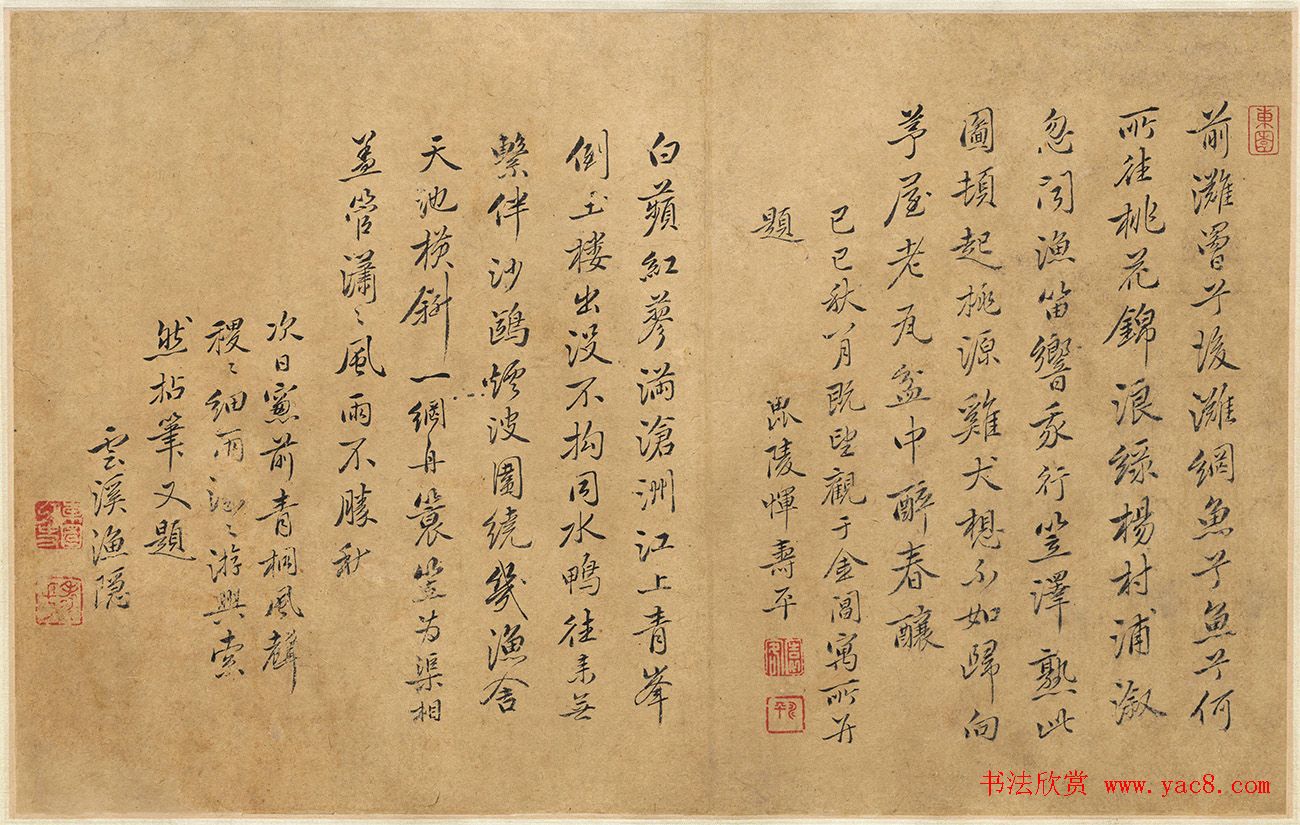 東園
前灘罾子後灘網魚子魚子何
所往桃花錦浪綠楊村浦溆
忽聞漁笛響我行笠澤熟此
圖頓起桃源雞犬想不如歸向
茅屋老瓦盆中醉春釀
己巳秋八月既望觀于金閶寓所并
題
毘陵惲壽平
白蘋紅蓼滿滄洲江上青峯
倒玉楼出沒不拘同水鴨往来無
繫伴沙鷗煙波圍繞幾漁舍
天池橫斜一網舟簑笠為渠相
盖管瀟〻風雨不勝秋
次日窻前青桐風聲
稷〻細雨〻游興索
然拈筆又題
雲溪漁隱
书法欣赏 www.yac8.com